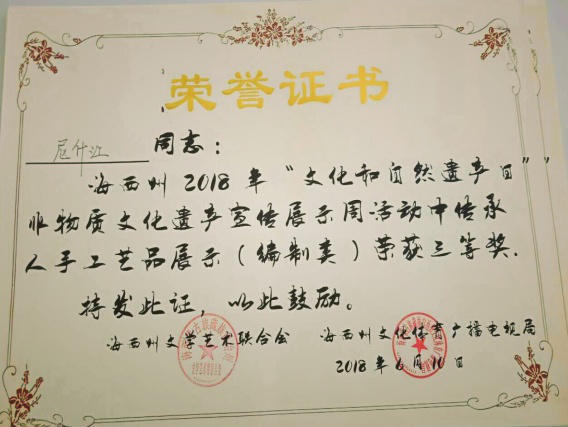 荣誉证书
尼什江 同志：
海西州 2018 年“文化和自然遗产日”
非物质文化遗产宣传展示周活动中传承
人手工艺品展示（编制类）荣获三等奖.
特发此证，以此鼓励。
海西州文学艺术联合会 海西州文化体育广播电视局
2018 年 6 月 10 日